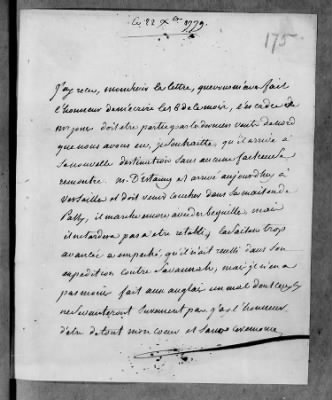 ces 22 Xbre 1779.
175
J'ay recu, monsieur la lettre, que vous m'avés fait
l'honneur de m'écrire les 8 de ce mois, l'escadre de
doit être partie par le dernier vent de nord
que nous avons eu, je souhaitte qu'il arrive à
sa nouvelle destination sans aucune facheuse
rencontre. M. D'Estaing est arrivé aujourd'huy à
Versailles et doit venir coucher dans sa maison de
Passy, il marche encore avec des bequilles mais
il ne tardera pas a etre retabli, la saison trop
avancée a empeché qu'il n'ait reussi dans son
expédition contre Savannah, mais il n'en a
pas moins fait aux anglais un mal dont
ne se vanteront surement pas, j'ay l'honneur
d'etre de tout mon coeur et sans ceremonie,